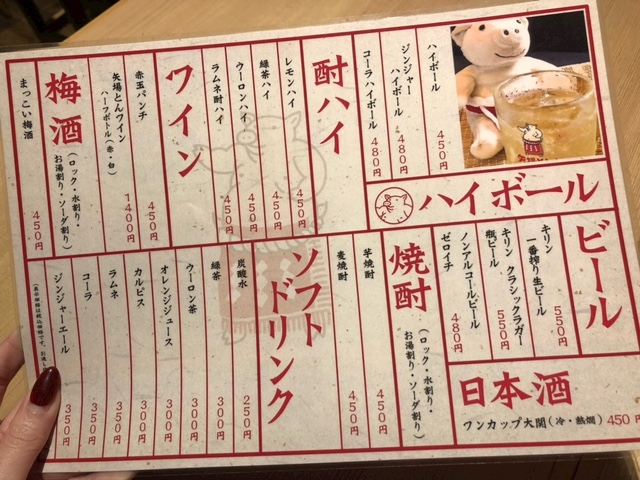 ハイボール
ハイボール 450円
ジンジャーハイボール 480円
コーラハイボール 480円
酎ハイ
レモンハイ 450円
緑茶ハイ 450円
ウーロンハイ 450円
ラムネ酎ハイ 450円
ワイン
赤玉パンチ 450円
矢場とんワイン
ハーフボトル(赤・白) 1400円
梅酒
(ロック・水割り・
お湯割り・ソーダ割り)
まっこい梅酒 450円
ビール
キリン
一番搾り生ビール 550円
キリン クラシックラガー
瓶ビール 550円
ノンアルコールビール
ゼロイチ 480円
日本酒
ワンカップ大関(冷・熱燗) 450円
焼酎
(ロック・水割り・
お湯割り・ソーダ割り)
芋焼酎 450円
麦焼酎 450円
ソフトドリンク
炭酸水 250円
緑茶 300円
ウーロン茶 300円
オレンジジュース 300円
カルピス 300円
ラムネ 300円
コーラ 350円
ジンジャーエール 350円